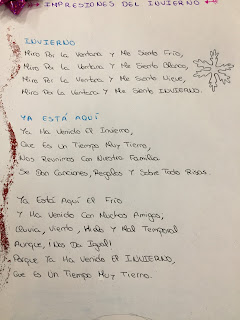 IMPRESIONES DEL INVIERNO
INVIERNO
Miro Por La Ventana Y Me Siento Frío,
Miro Por La Ventana Y Me Siento Blanco,
Miro Por La Ventana Y Me Siento Nieve,
Miro Por La Ventana Y Me Siento INVIERNO.
YA ESTÁ AQUÍ
Ya Ha Venido El Invierno,
Que Es Un Tiempo Muy Tierno,
Nos Reunimos Con Nuestra Familia
Se Dan Canciones, Regalos Y Sobre Todo Risas.
Ya Está Aquí El Frío
Y Ha Venido Con Muchos Amigos;
Lluvia, Viento, Hielo Y Mal Temporal
Aunque, ¡Nos Da Igual!
Porque Ya Ha Venido El INVIERNO,
Que Es Un Tiempo Muy Tierno.